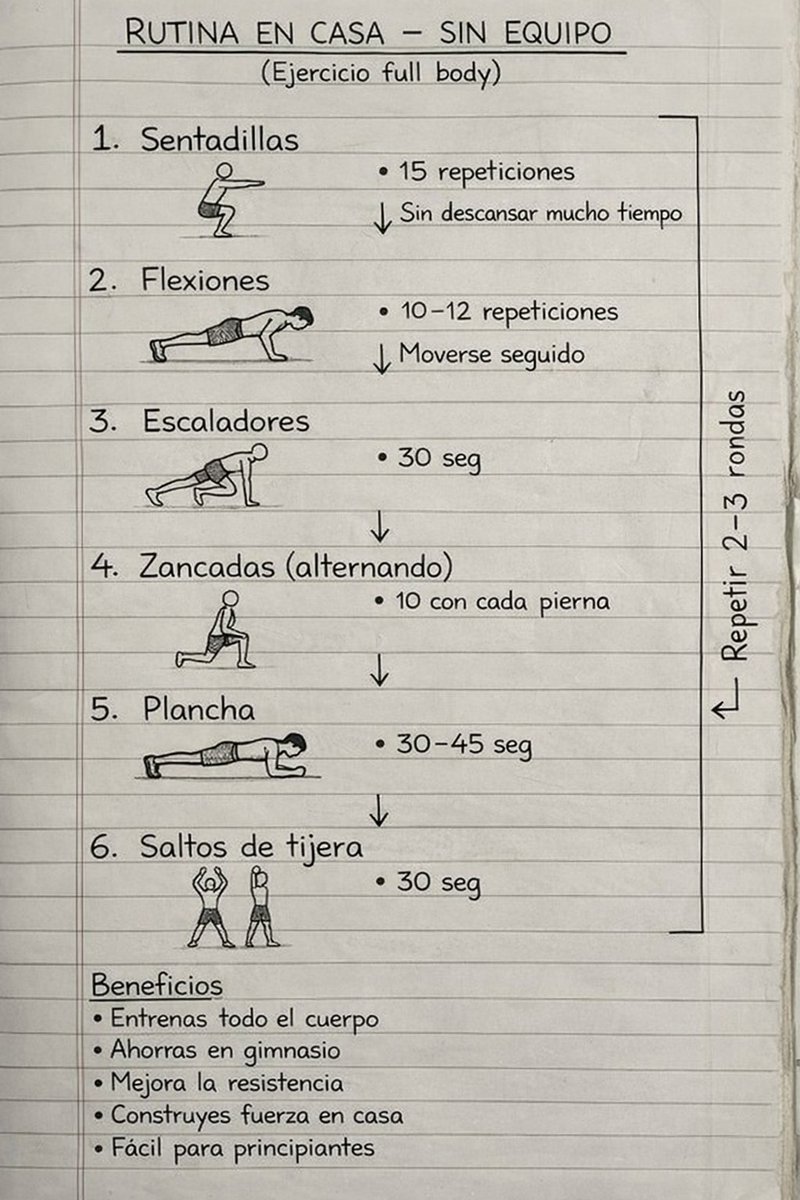 RUTINA EN CASA – SIN EQUIPO
(Ejercicio full body)
1. Sentadillas
• 15 repeticiones
↓ Sin descansar mucho tiempo
2. Flexiones
• 10–12 repeticiones
↓ Moverse seguido
3. Escaladores
• 30 seg
↓
4. Zancadas (alternando)
• 10 con cada pierna
↓
5. Plancha
• 30–45 seg
↓
6. Saltos de tijera
• 30 seg
Repetir 2–3 rondas
Beneficios
• Entrenas todo el cuerpo
• Ahorras en gimnasio
• Mejora la resistencia
• Construyes fuerza en casa
• Fácil para principiantes